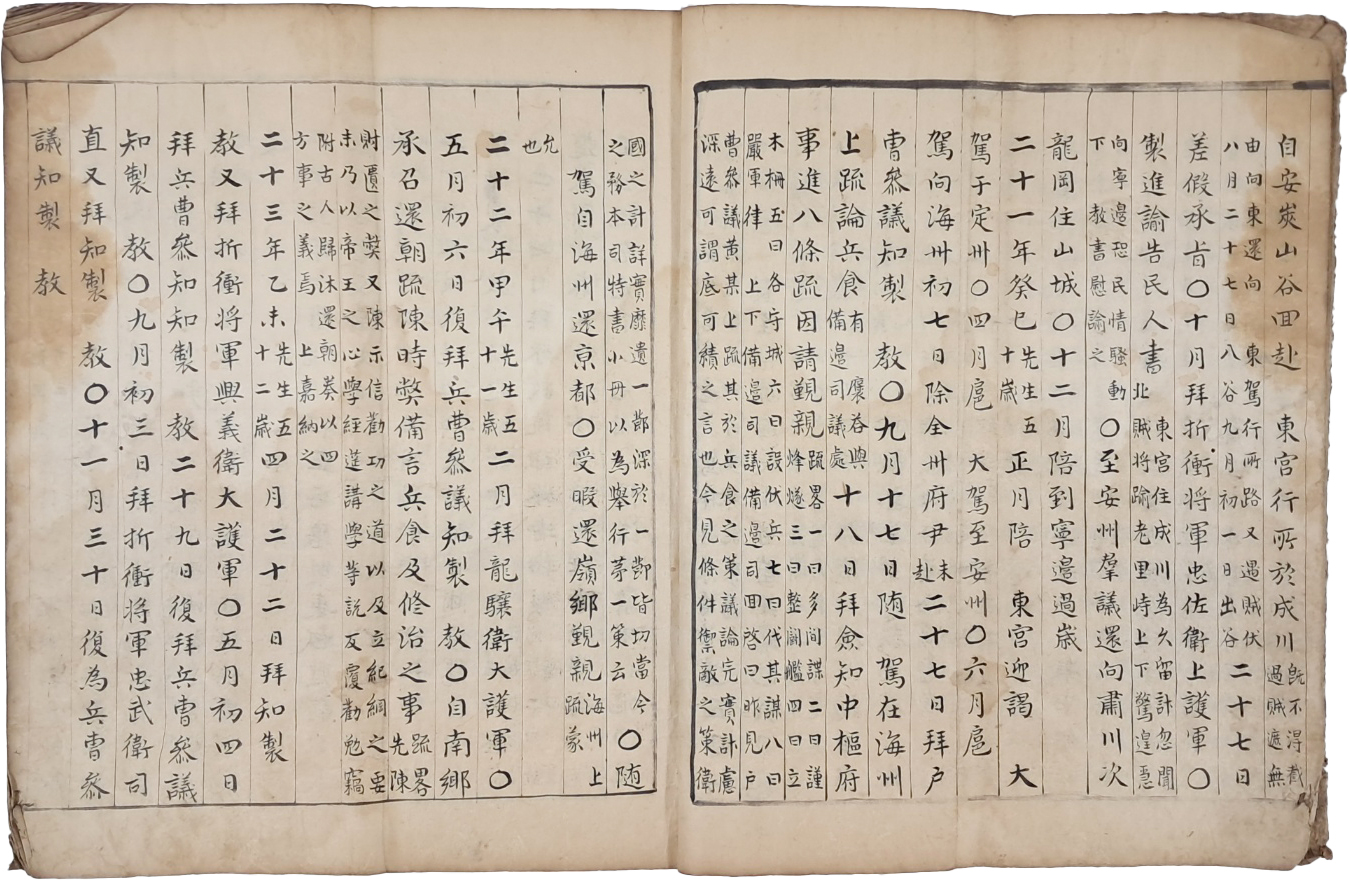 自安炭山谷回赴 東宮行所於成川旣不得截
過賊遮無
由向東還向 東駕行所路又遇賊伏
八月二十七日八谷九月初一日出谷二十七日
差假承旨〇十月拜折衝将軍忠佐衛上護軍〇
製進諭告民人書東宮住成川為久留計忽聞
北賊将踰老里峙上下驚遑悪
向寧邉恐民情騷動
下 教書慰諭之〇至安州羣議還向肅川次
龍岡住山城〇十二月陪到寧邉過歲
二十一年癸巳先生五
十歲正月陪 東宮迎謁 大
駕于定州〇四月扈 大駕至安州〇六月扈
駕向海州初七日除全州府尹未
赴二十七日拜戶
曹叅議知製 教〇九月十七日随 駕在海州
上疏論兵食有 褒答與
備邉司議處十八日拜僉知中樞府
事進八條疏因請覲親疏畧一曰多间諜二曰謹
烽燧三曰整鬬艦四曰立
木柵五曰各守城六曰設伏兵七曰伐其謀八曰
嚴軍律 上下備邉司議備邉司回啓曰昨見戶
曹叅議黃某上疏其於兵食之策議論完實計慮
深遠可謂底可績之言也今見條件禦敵之策衛
國之計詳實靡遺一鄼深於一鄼皆切當今
之務本司特書小冊以為舉行茅一策云〇随
駕自海州還京都〇受暇還嶺鄉覲親海州上
疏蒙
允
也
二十二年甲午先生五
十一歲二月拜龍驤衛大護軍〇
五月初六日復拜兵曹叅議知製 教〇自南鄉
承召還朝疏陳時弊備言兵食及修治之事疏畧
先陳
財遺之獘又陳示信勸功之道以及立紀綱之要
末乃以帝王之心學經莚講學等說反覆勸勉竊
附古人歸沐還朝奏以四
方事之義焉 上嘉納之
二十三年乙未先生五
十二歲四月二十二日拜知製
教又拜折衝将軍興義衛大護軍〇五月初四日
拜兵曹叅知知製 教二十九日復拜兵曹叅議
知製 教〇九月初三日拜折衝将軍忠武衛司
直又拜知製 教〇十一月三十日復為兵曹叅
議知製 教